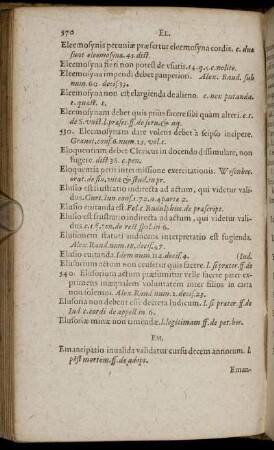 570 EL.
Eleemosynis pecuniæ præfertur eleemosyna cordis. c. duæ
sunt eleemosynæ. 45. dist.
Eleemosyna fieri non potest de vsuris. 14. q. 5. c. nolite.
Eleemosyna impendi debet pauperiori. Alex. Raud. sub
num. 60. decis. 53.
Eleemosyna non est elargienda de alieno. c. nec putanda.
1. quæst. 1.
Eleemosynam debet quis prius facere sibi quam alteri.
530. Eleemosynam dare volens debet à seipso incipere.
Gramat. conf. 6. num. 12. vol. 1.
Eloquentiam debet Clericus in docendo dissimulare, non
fugere. dist. 38. c. pen.
Eloquentia perit intermissione exercitationis.
Elusio est frustratio indirecta ad actum, qui videtur vali-
dus. Curt. Iun. cons. 172. n. 4. parte 2.
Elusio euitanda est
Elusio est frustratio indirecta ad actum, qui videtur vali-
dus. in 6.
Elusionem statuti inducens interpretatio est fugienda.
Alex. Raud. num. 10. decis. 47.
Elusio euitanda. Idem num. 112. decis. 4. (Iud.
Elusorium actum non censetur quis facere. l. si præter. ff. de
540. Elusorium actum præsumitur velle facere pater ex-
primens inæqualem voluntatem inter filios in carta
non solemni. Alex. Raud. num. 2. decis. 23.
Elusoria non debent esse decreta Iudicum. l. si præter. ff. de
Iud. de appell. in 6.
Elusoriæ minæ non timendæ. l. legitimam ff. de pet. her.
EM.
Emancipatio inualida validatur cursu decem annorum. l.
post mortem. ff. de adopt.
Eman-